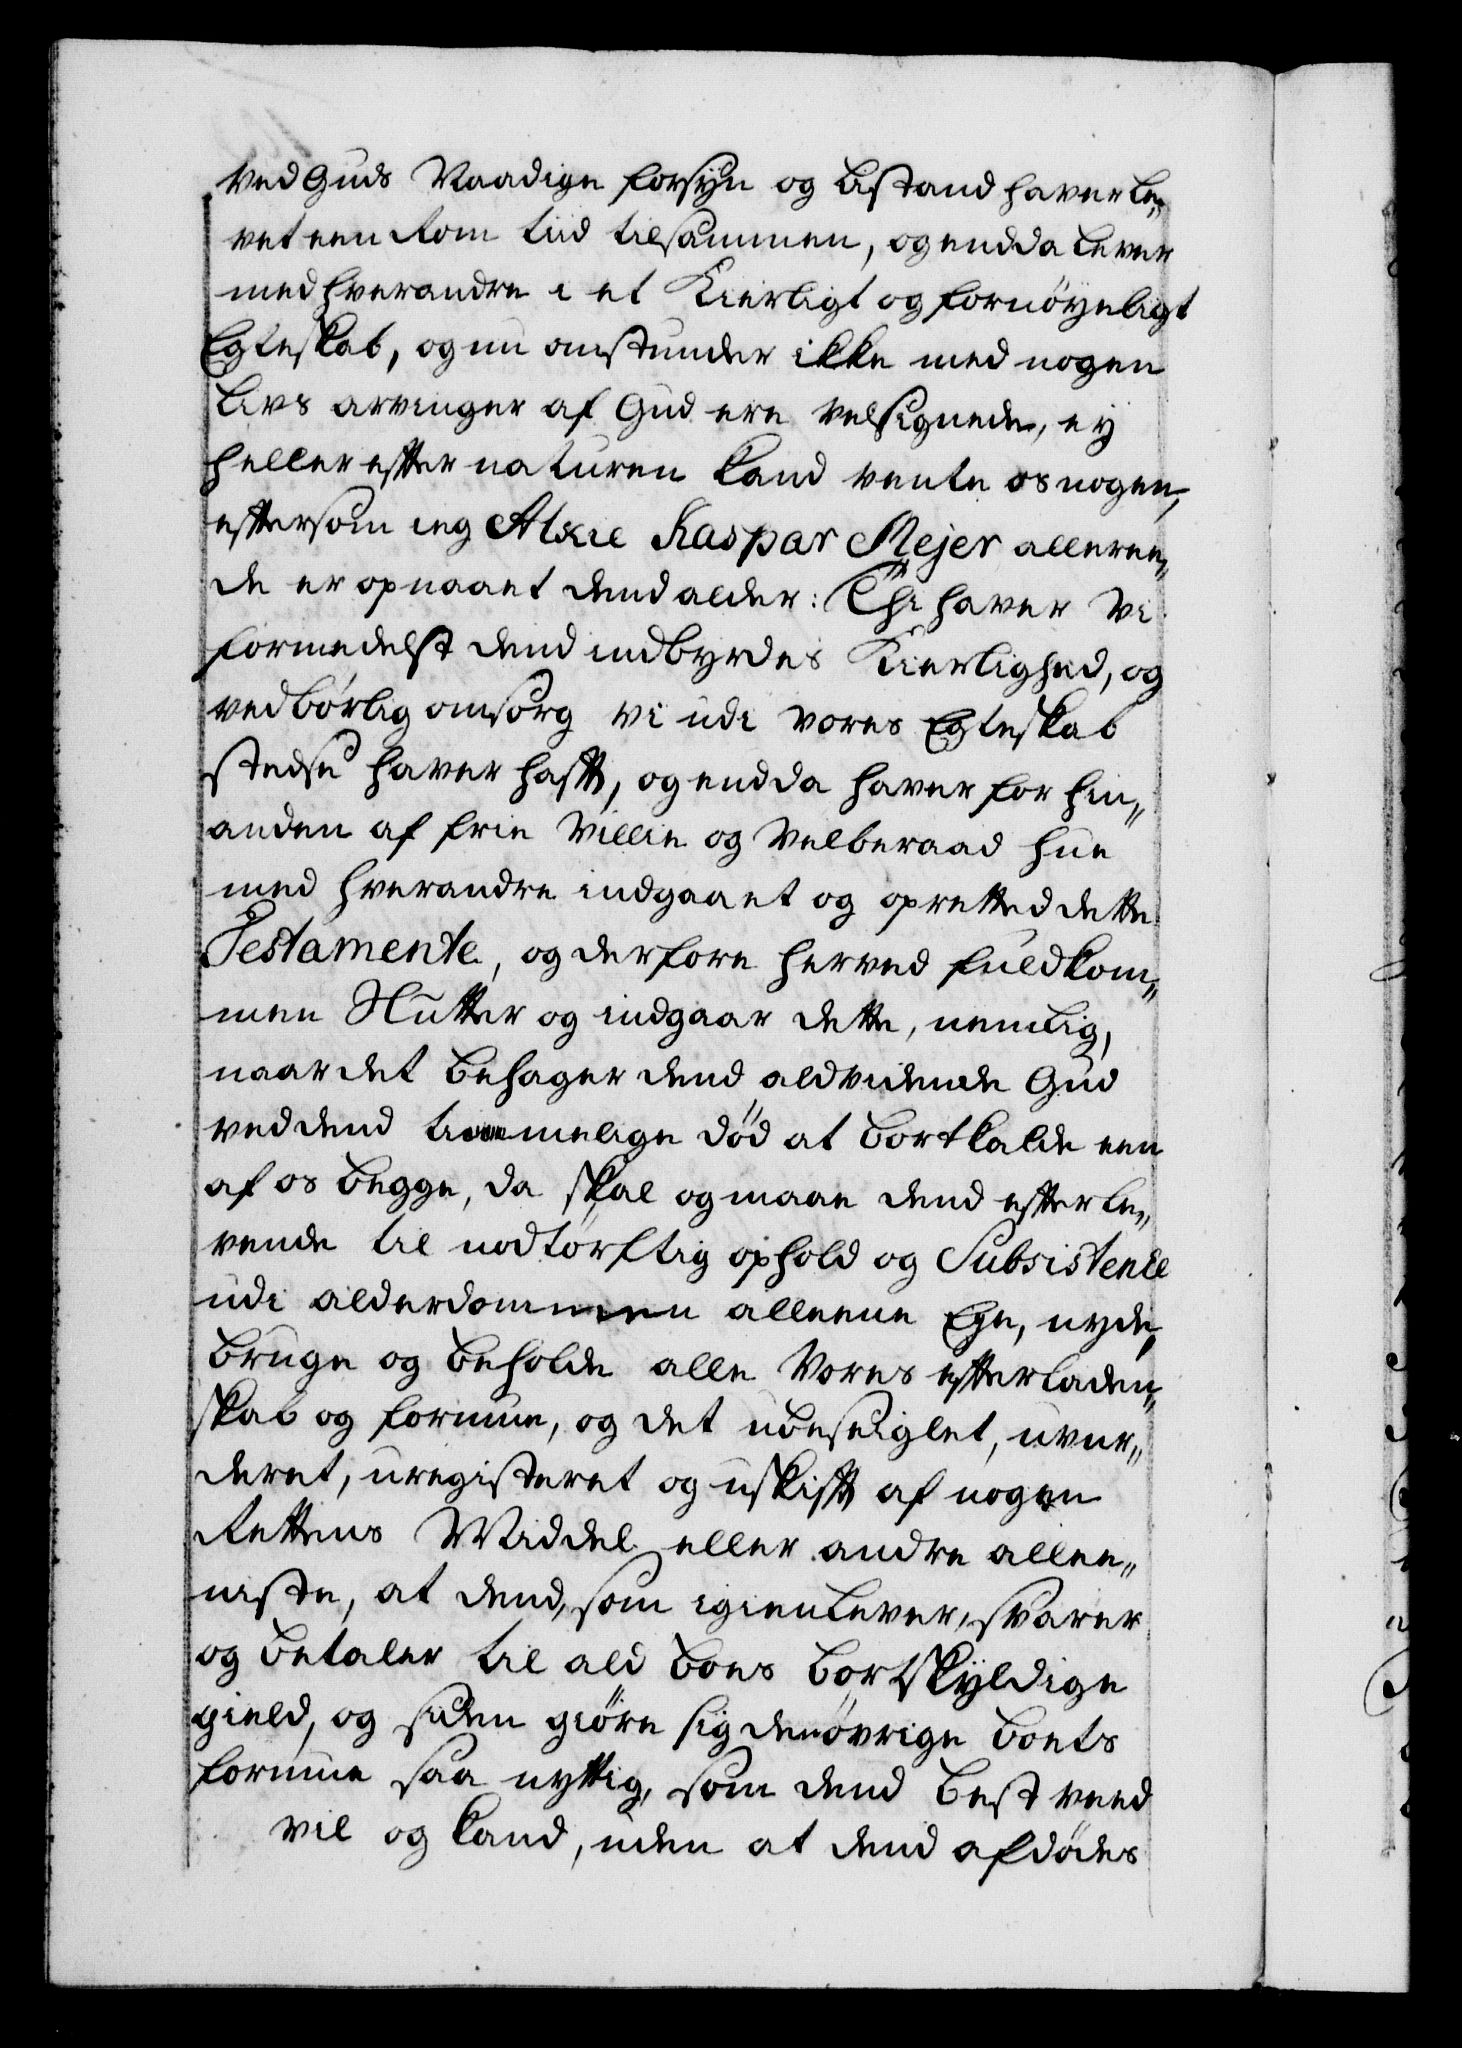 ved Guds Naadige forsÿn og bestand haver le„
vet een kom tiid tilsammen, og endda lever
med hverandre i et Kierligt og fornöyeligt
Egteskab, og nu omstunder ikke med nogen
livs arvinger af Gud ere velsignede, ey
heller effter naturen kand vente os nogen,
effersom ieg Alxie Kaspar Mejer alleree„
de er opnaaet dend alder: Thi haver Vi
formedelst dend indbyrdes Kierlighed, og
vedbörlig omsorg vi udi vores Egteskab
stedse haver hafft, og endda haver for hin„
anden af frie Villie og Velberaad hue
med hverandre indgaaet og opretted dette
Testamente, og derfore herved fuldkom„
men Slutter og indgaar dette, nemlig,
naar det behager dend aldvidende Gud
ved dend timmelige död at bortkalde een
af os begge, da skal og maae dend effterle„
vende til nodtörftig ophold og Subsistence
udi alderdommen alleene Eÿe, nyde,
bruge og beholde alle Vores effterladen„
skab og formue, og det ubeseiglet, uvur„
deret, uregisteret og uskifft af nogen
Rettens Middel eller andre allee„
niste, at dend, som igienlever, svarer
og betaler til ald boes bortskÿldige
gield, og siden giöre sig den övrige boets
formue saa nyttig, som dend best veed
vil og kand, uden at dend afdödes